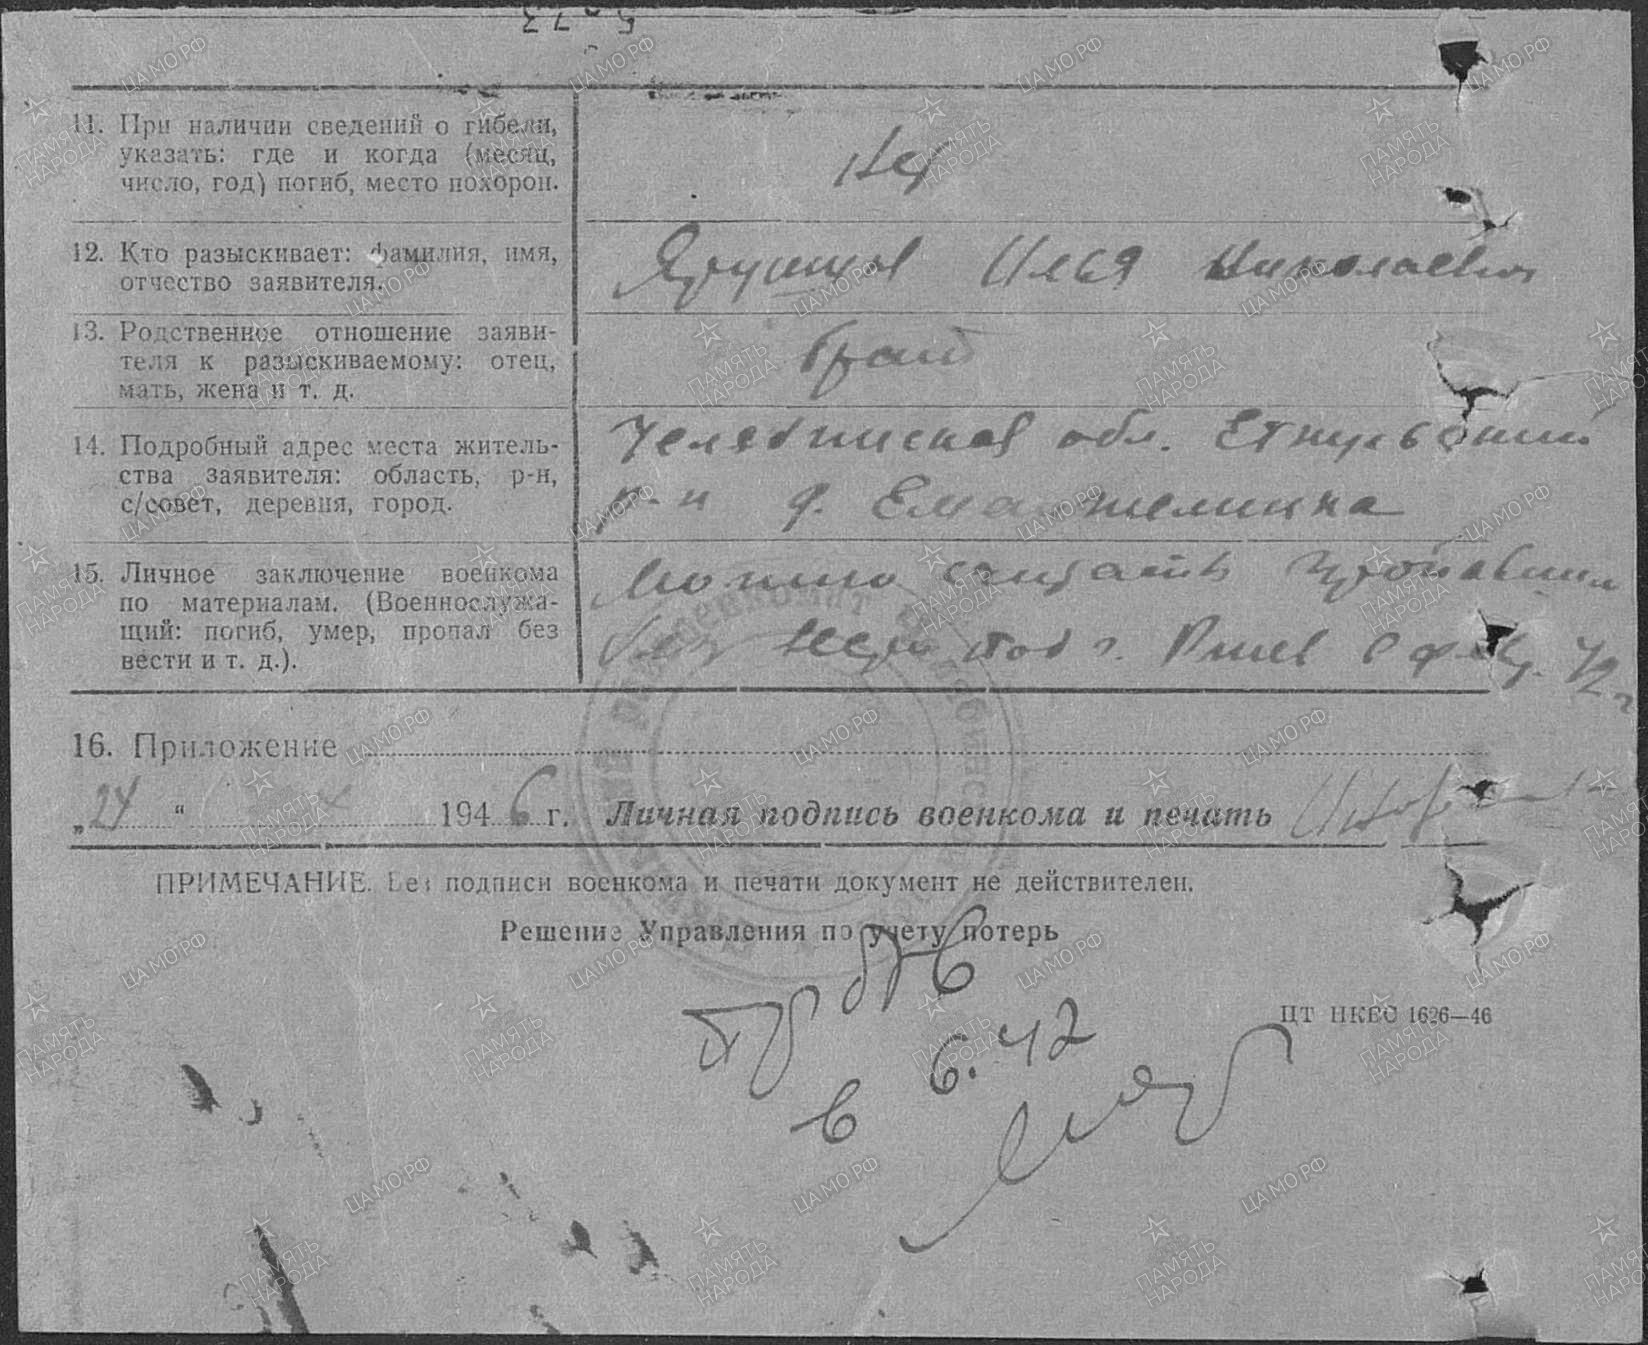 11. При наличии сведений о гибели,
указать: где и когда (месяц,
число, год) погиб, место похорон.
нет
12. Кто разыскивает: фамилия, имя,
отчество заявителя.
Илья Николаевич
13. Родственное отношение заяви-
теля к разыскиваемому: отец,
мать, жена и т. д.
брат
14. Подробный адрес места житель-
ства заявителя: область, р-н,
с/совет, деревня, город.
Челябинская обл. Еткульский
р-н д. Еманжелинка
15. Личное заключение военкома
по материалам. (Военнослужа-
щий: погиб, умер, пропал без
вести и т. д.).
можно считать пропавшим
без вести под г. Ржев в 42 г
16. Приложение
„24“ 1946 г. Личная подпись военкома и печать
ПРИМЕЧАНИЕ. Без подписи военкома и печати документ не действителен.
Решение Управления по учету потерь
пр б/в
в 6.42
ЦТ НКВС 1626—46
ПАМЯТЬ НАРОДА
ЦАМО.РФ